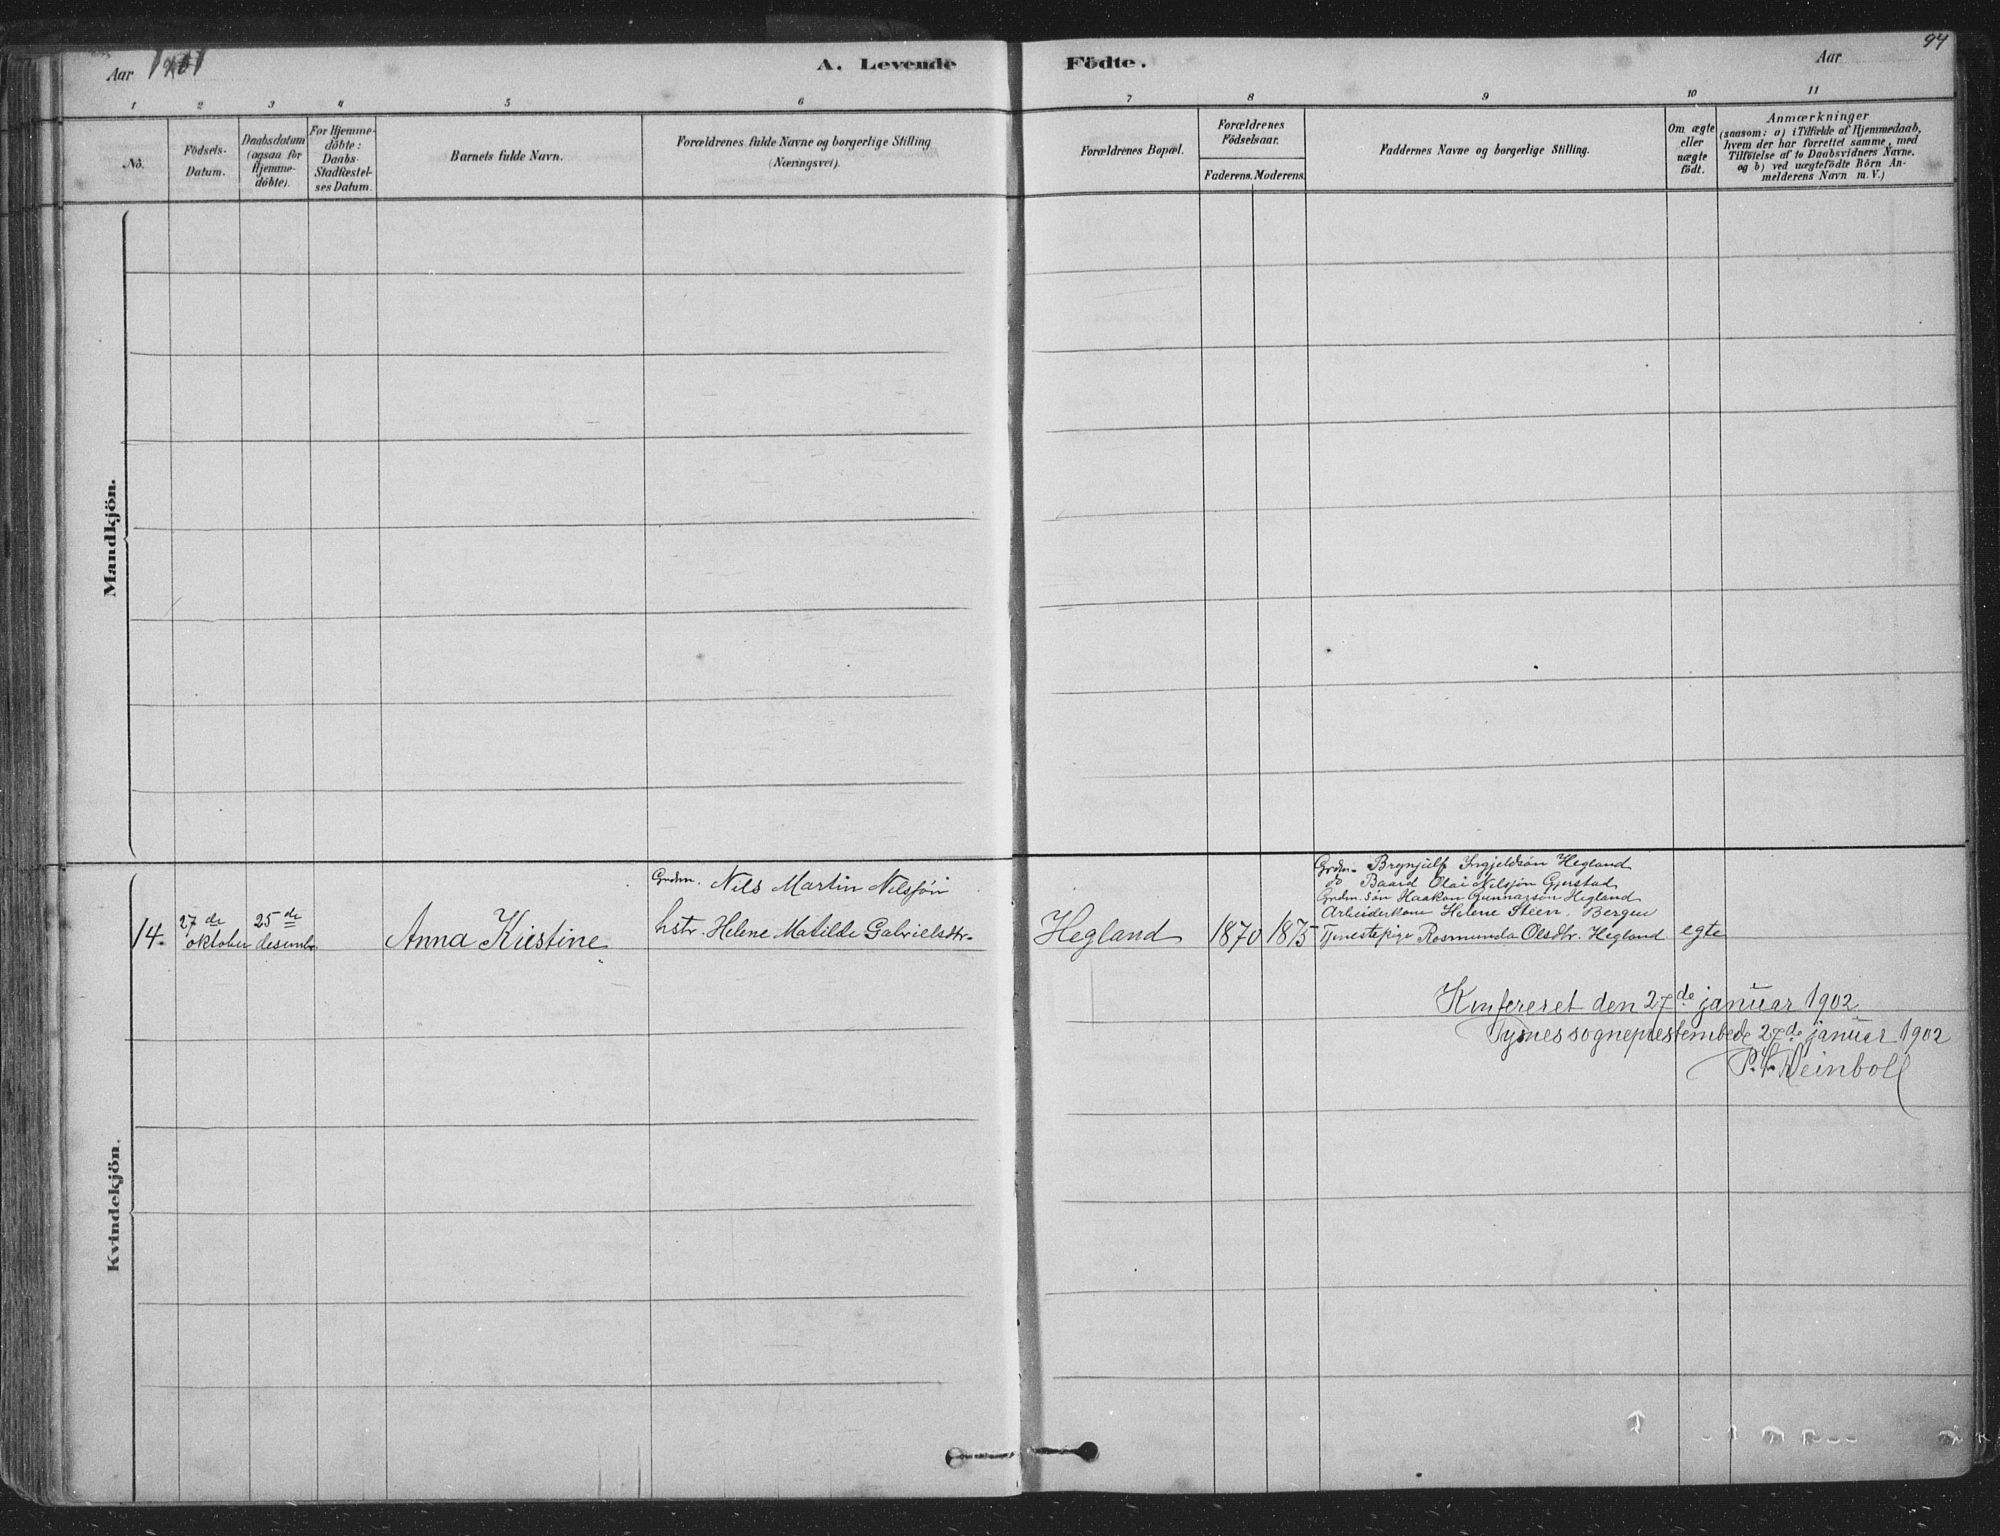 Aar 1901
A. Levende
Födte.
Aar
94
1
2
3
4
5
6
7
8
9
10
11
No.
Födsels-
Datum.
Daabsdatum
(ogsaa for
Hjemme-
döbte).
For Hjemme-
döbte:
Daabs-
Stadfestel-
ses Datum.
Barnets fulde Navn.
Forældrenes fulde Navne og borgerlige Stilling
(Næringsvei).
Forældrenes Bopæl.
Forældrenes
Födselsaar.
Faderens. Moderens.
Faddernes Navne og borgerlige Stilling.
Om ægte
eller
uægte
födt.
Anmærkninger
(saasom: a) i Tilfælde af Hjemmedaab,
hvem der har forrettet samme, med
Tilföielse af to Daabsvidners Navne,
og b) ved uægtefödte Börn An-
melderens Navn m. V.)
Mandkjön.
Kvindekjön.
14.
27de
oktober
25de
desembr.
Anna Kristine
Grdm. Nils Martin Nilssön
hstr. Helene Matilde Gabrielsdtr.
Hegland
1870
1875
Grdm. Brynjulf Ingjeldsön Hegland
do Baard Olai Nilssön Gjerstad
Grdm. sön Haakon Gunnarsön Hegland
Arbeiderkone Helene Steen, Bergen
Tjenestepige Rosmunda Olsdtr. Hegland
egte
Konfereret den 27de januar 1902
Tysnes sogneprestembede 27de januar 1902
Reinboll